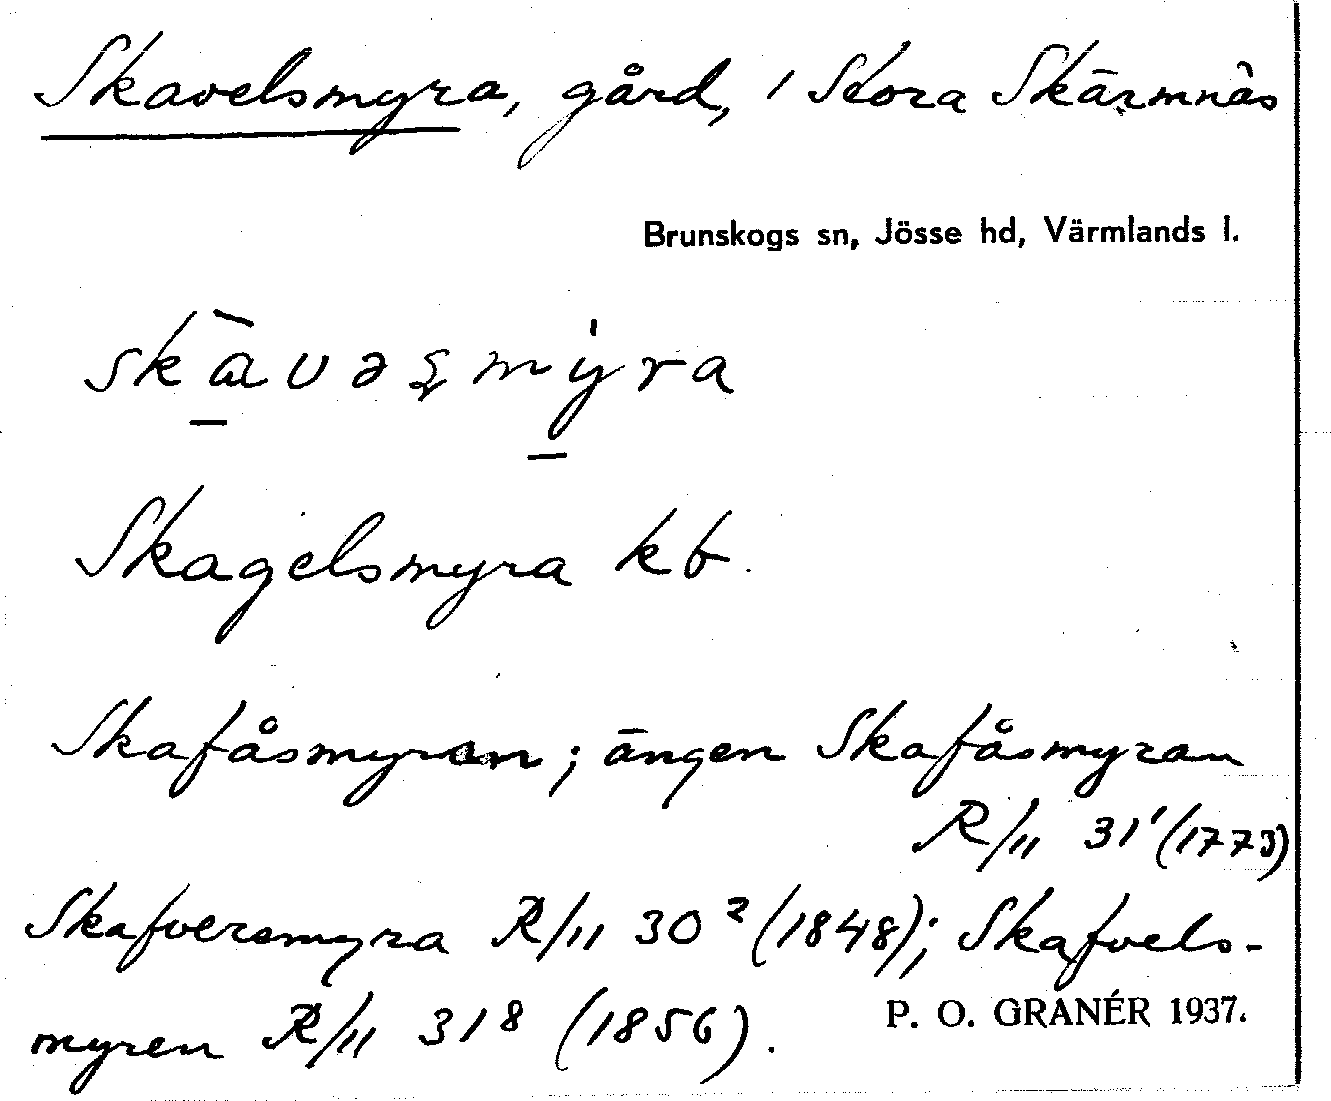 Skavelsmyra, gård, i Stora Skärmnäs
Brunskogs sn, Jösse hd, Värmlands l.
Skagelsmyra kb.
Skafåsmyran; ängen Skafåsmyran
R/11 31¹ (1773)
Skafversmyra R/11 30² (1848); Skafvels-
myren R/11 31⁸ (1856).
P. O. GRANÉR 1937.